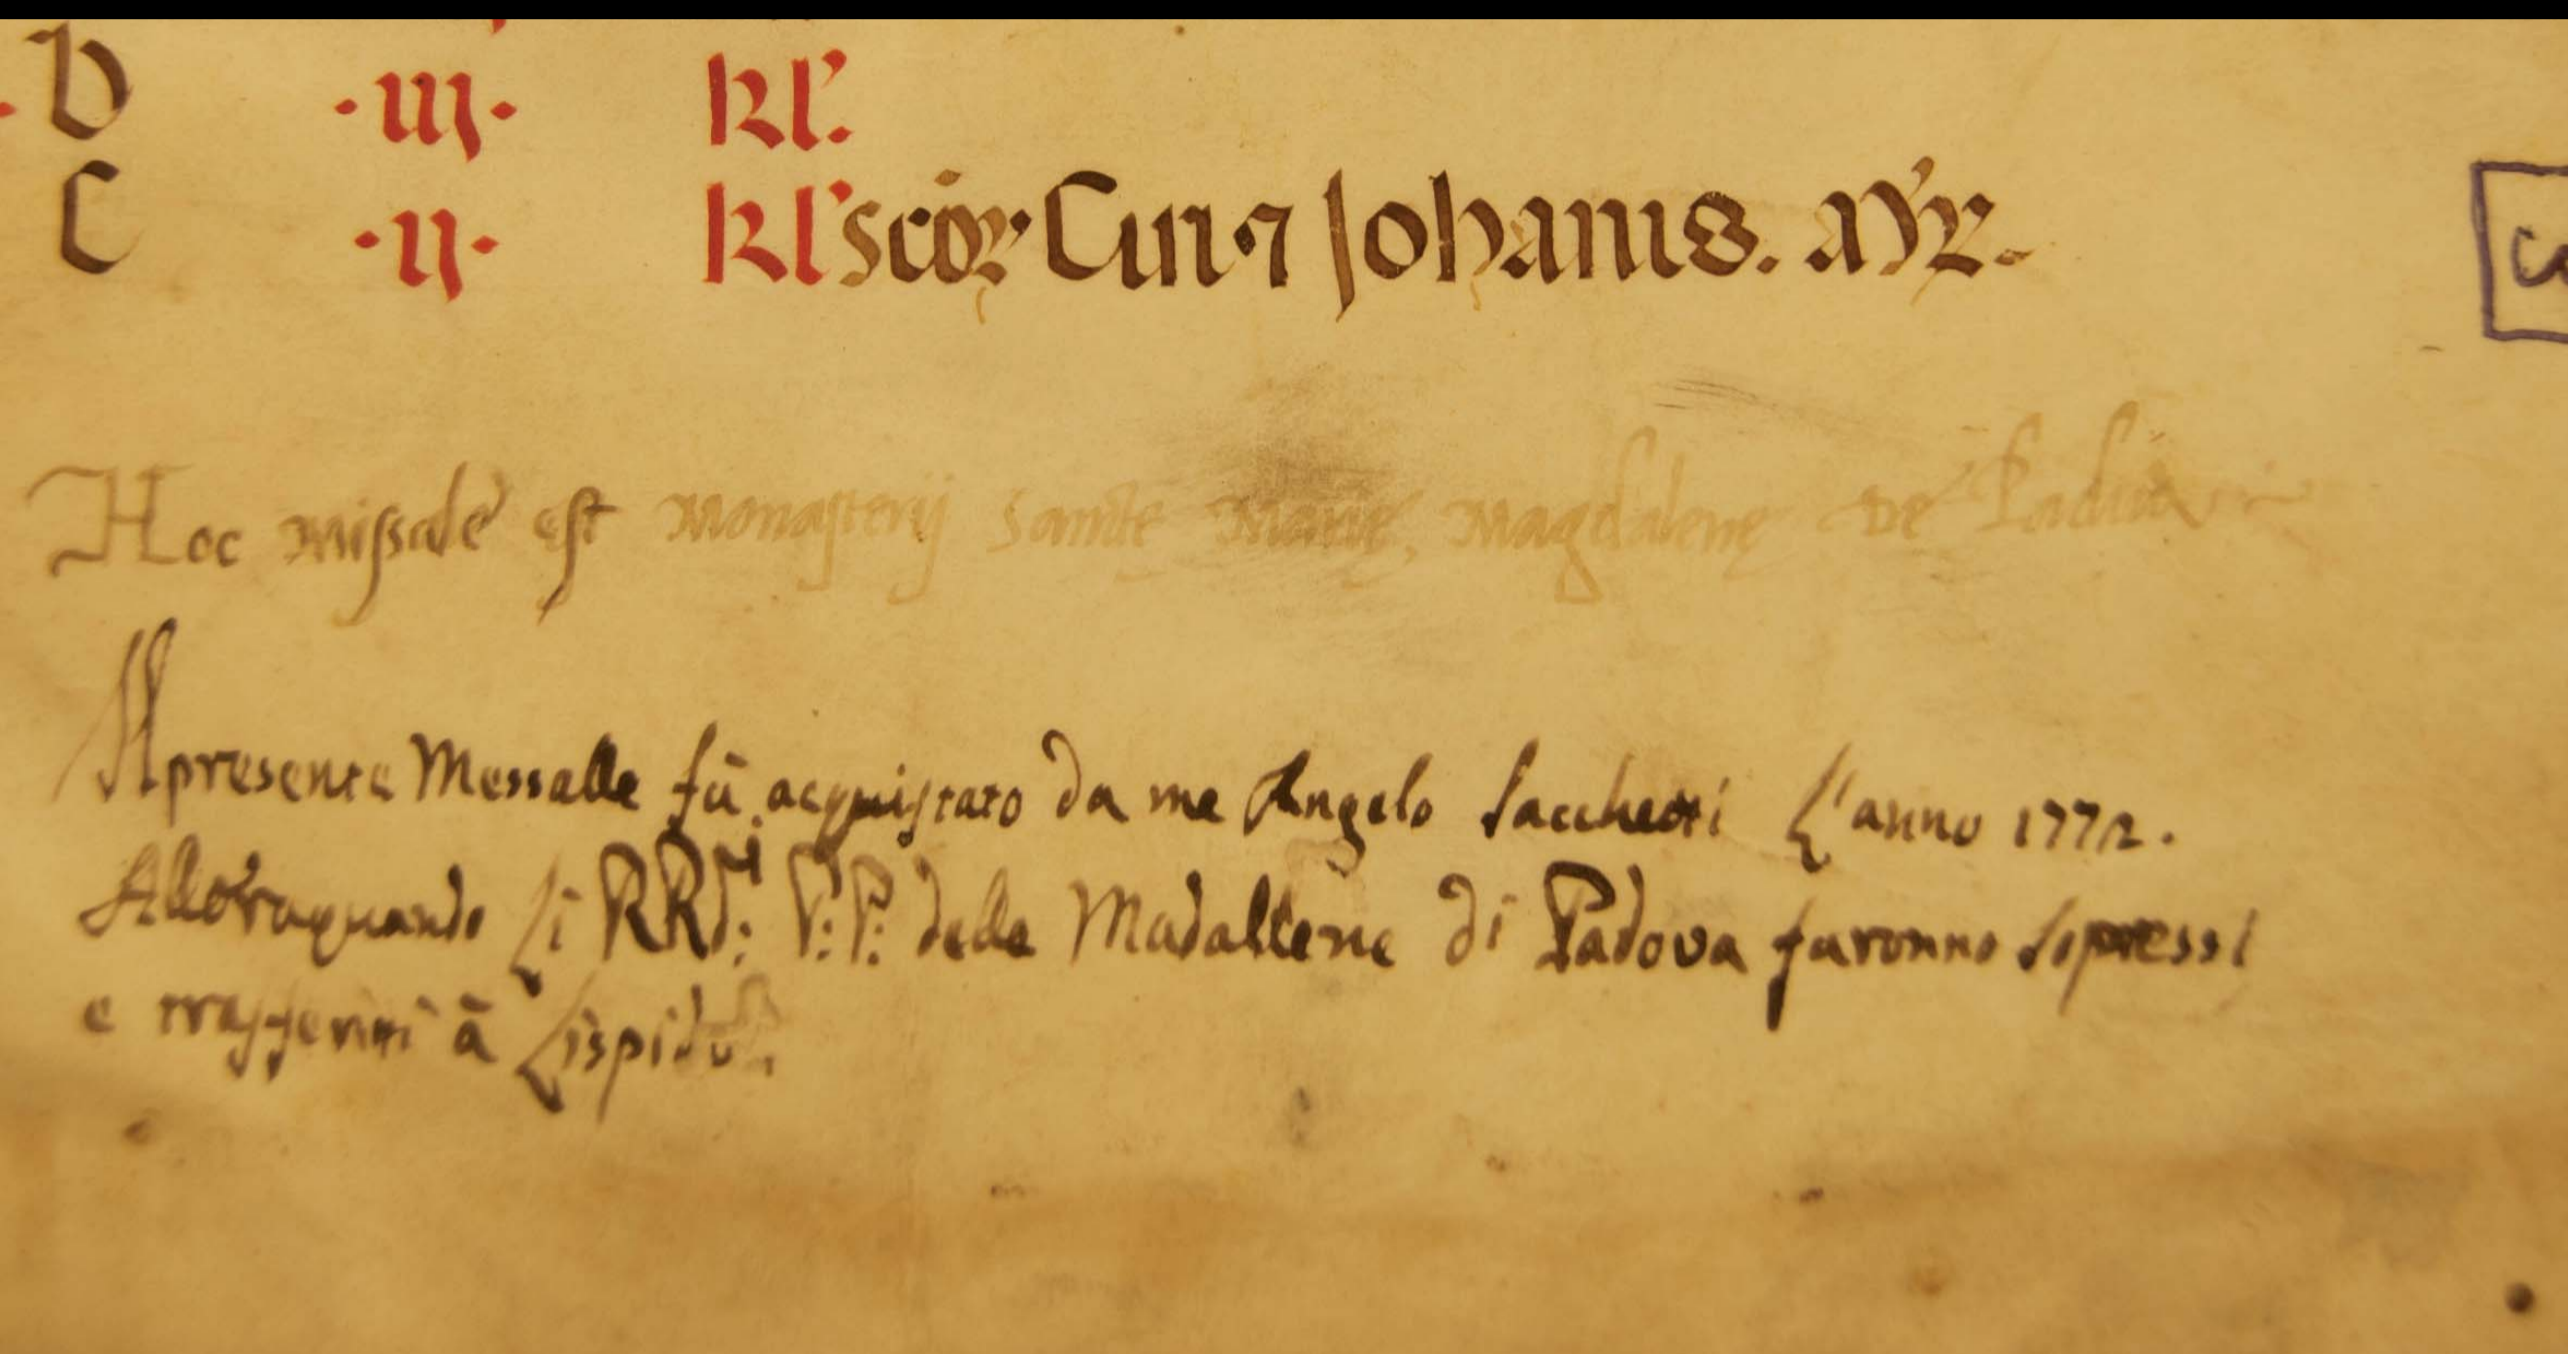 b ·iij· kl'.
c ·ij· kl' scōꝝ Ciri ⁊ Johanis. mr̃.
Hoc missale est Monasterij Sanctę Marię Magdalenę De Padua
Il presente Messalle fù acquistato da me Angelo Sacchetti L'anno 1772.
Alloraquando Li RRdi: P:P: delle Madallene di Padova furonno Sopressi
e trasferiti à Lispida